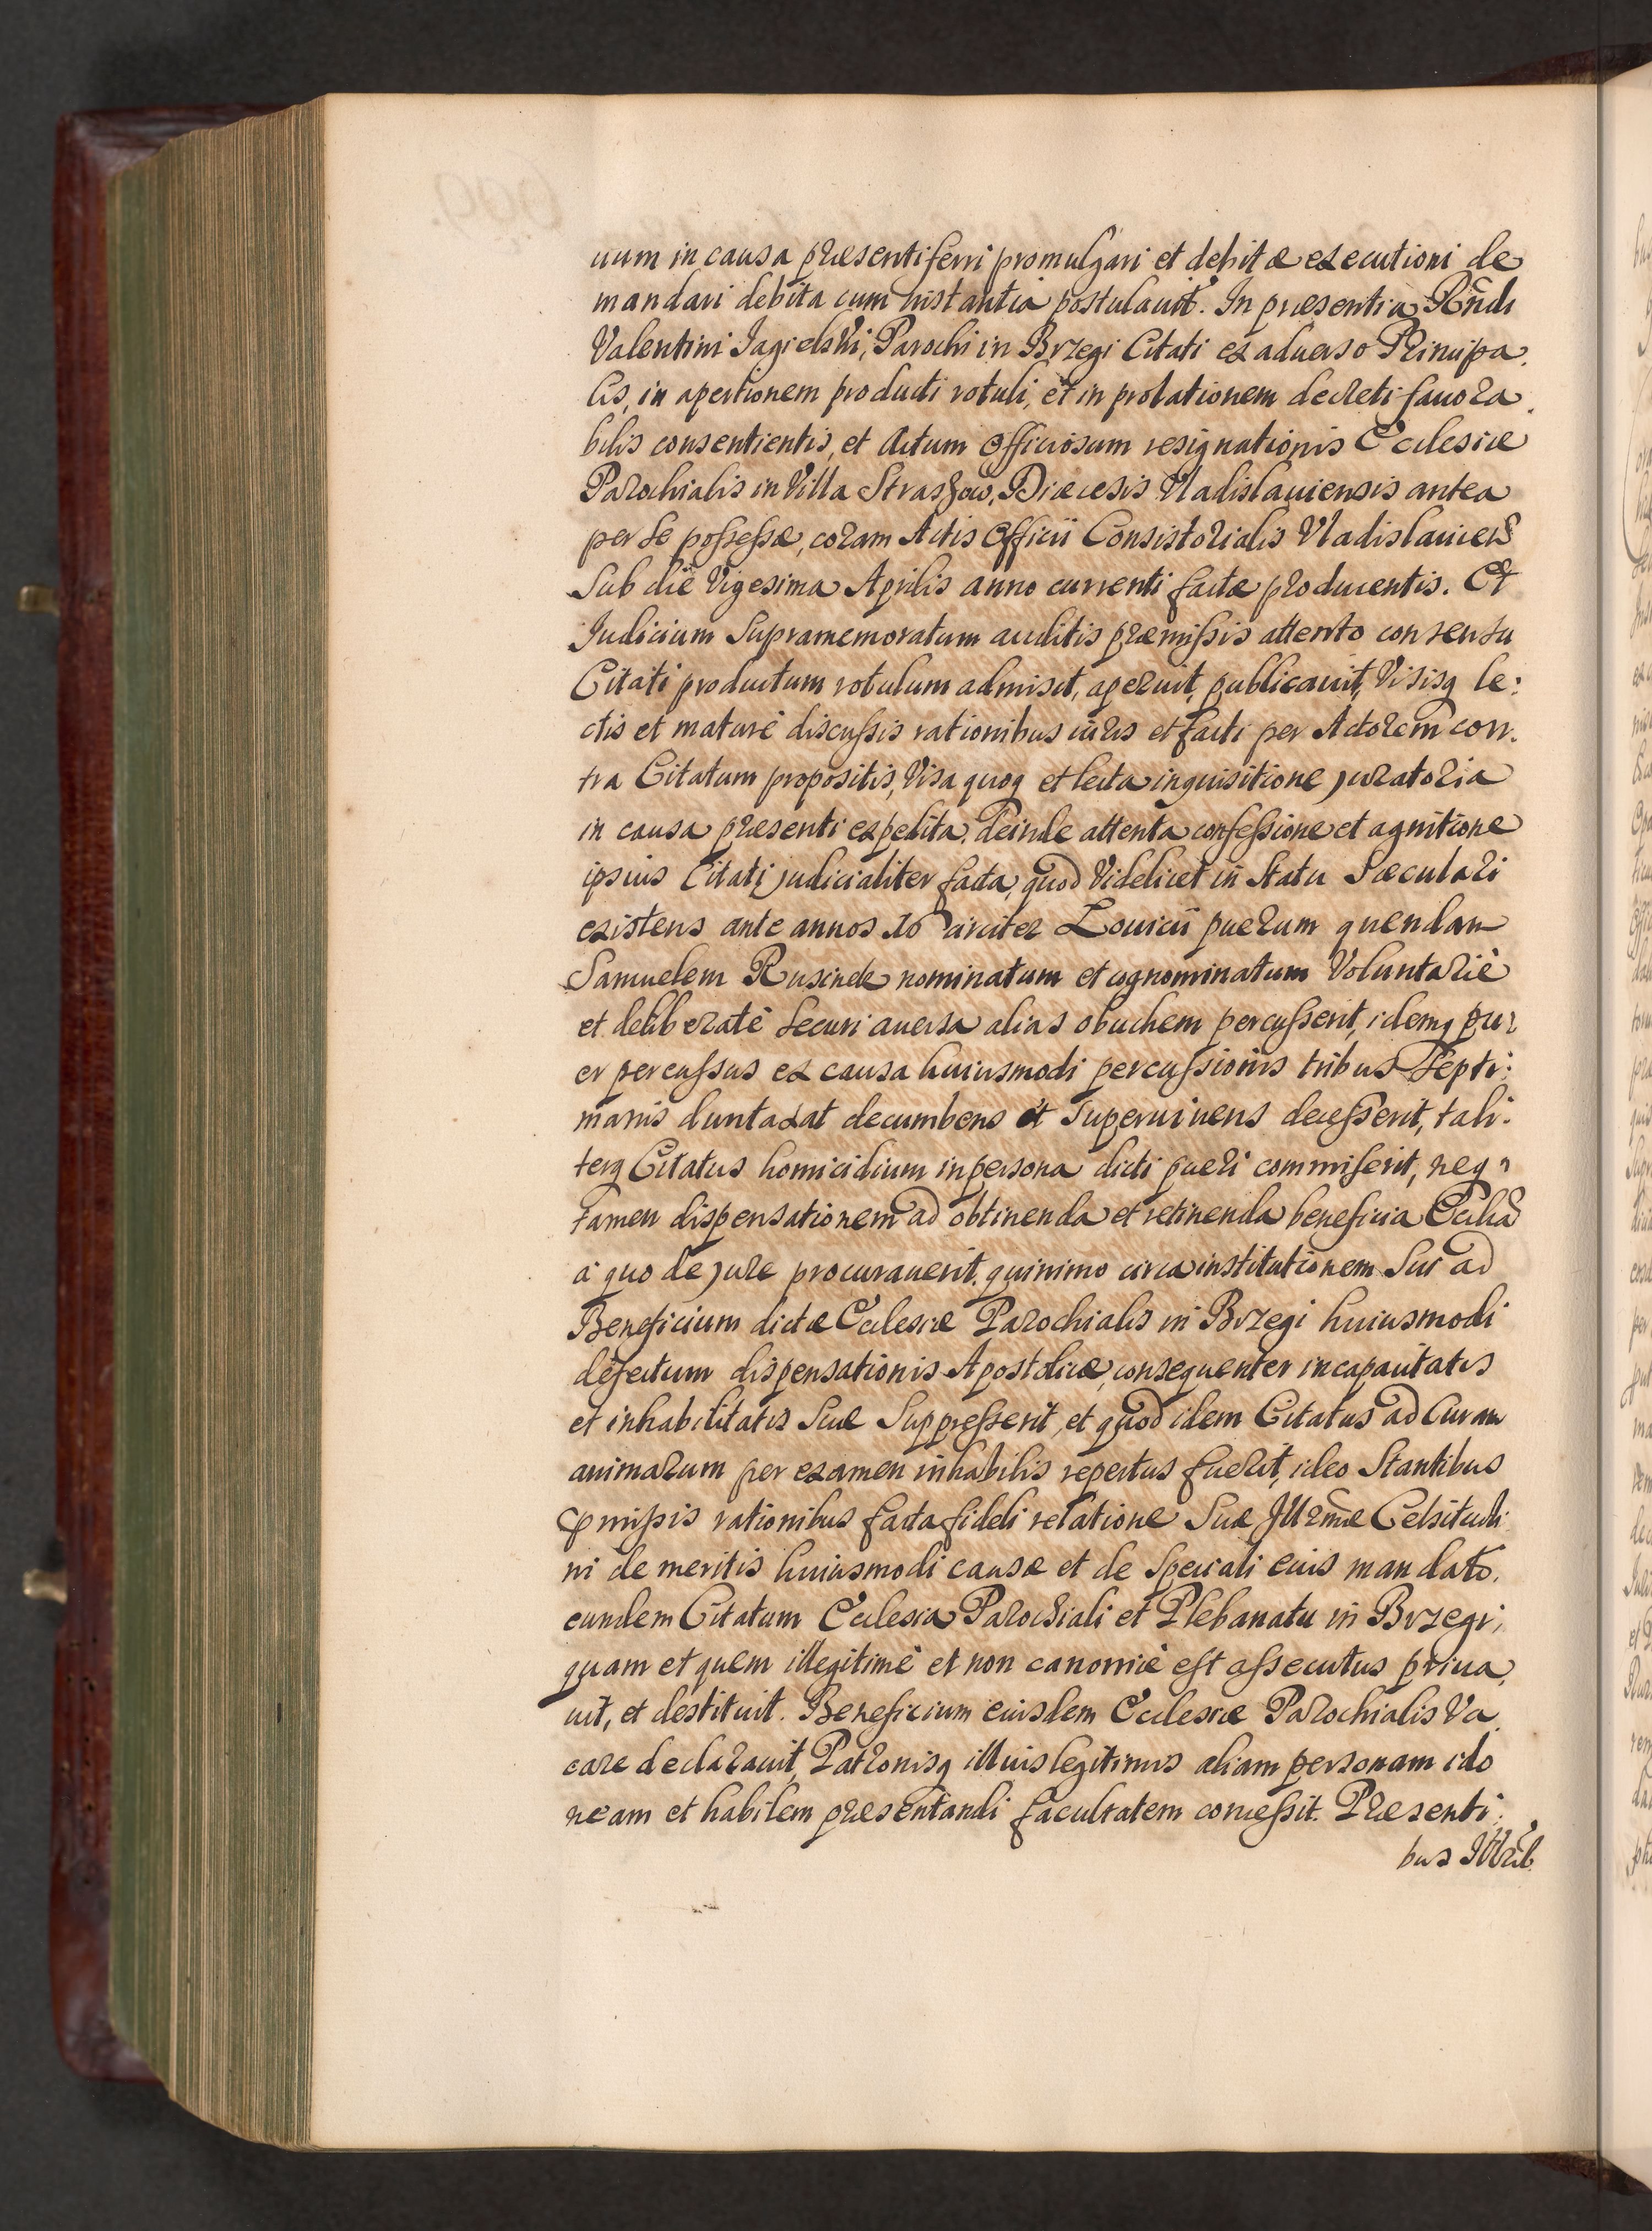 uum in causa præsenti ferri promulgari et debitæ executioni de
mandari debita cum instantia postulauit. In præsentia Rñdi
Valentini Jagielski, Parochi in Brzegi Citati ex aduerso Principa
lis, in apertionem producti rotuli, et in prolationem decreti fauora
bilis consentientis, et Actum Officiosum resignationis Ecclesiæ
Parochialis in Villa Straszow, Diæcesis Vladislauiensis antea
per se possessæ, coram Actis Officii Consistorialis Vladislauien
Sub die Vigesima Aprilis anno currenti factæ producentis. Et
Iudicium Supramemoratum auditis præmissis attento consensu
Citati productum rotulum admisit, aperuit, publicauit, Visisq le:
ctis et maturè discussis rationibus iuris et facti per Actorem con
tra Citatum propositis, Visa quoq et lecta inquisitione juratoria
in causa præsenti expedita, deinde attenta confessione et agnitione
ipsius Citati judicialiter facta, quod Videlicet in Statu Sæculari
existens ante annos 16 circiter Louicii puerum quendam
Samuelem Rusinek nominatum et cognominatum Voluntariè
et deliberatè Securi auersa alias obuchem percusserit, idemq pu:
er percussus ex causa huiusmodi percussionis tribus Septi:
manis duntaxat decumbens et Superuiuens decesserit, tali:
terq Citatus homicidium in persona dicti pueri commiserit, neq
tamen dispensationem ad obtinenda et retinenda beneficia Ecclia
à quo de jure procurauerit, quinimo circa institutionem Sui ad
Beneficium dictæ Ecclesiæ Parochialis in Brzegi huiusmodi
defectum dispensationis Apostolicæ, consequenter incapacitatis
et inhabilitatis Suæ Suppresserit, et quod idem Citatus ad Curam
animarum per examen inhabilis repertus fuerit, ideo Stantibus
pmissis rationibus facta fideli relatione Suæ Illrmæ Celsitudi
ni de meritis huiusmodi causæ et de Speciali eius mandato,
eundem Citatum Ecclesia Parochiali et Plebanatu in Brzegi,
quam et quem illegitimè et non canonicè est assecutus priua
uit, et destituit. Beneficium eiusdem Ecclesiæ Parochialis Va
care declarauit, Patronisq illius legitimis aliam personam ido
neam et habilem præsentandi facultatem concessit. Præsenti:
bus Illrib.